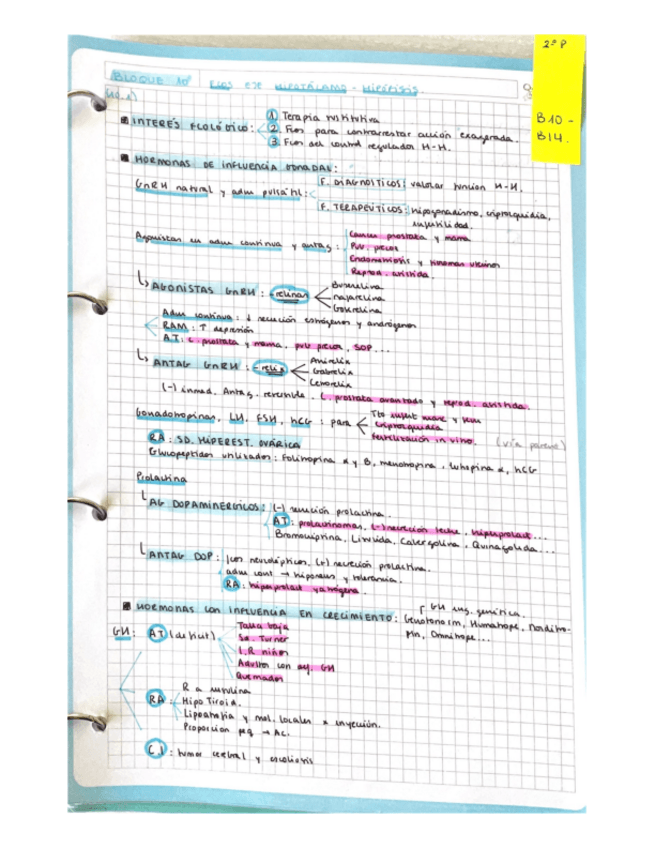 2º P
B10 -
B14.
BLOQUE 10
FCOS EJE HIPOTÁLAMO - HIPÓFISIS.
(10.1)
INTERÉS FCOLÓGICO:
1. Terapia sustitutiva
2. Fcos para contrarrestar acción exagerada.
3. Fcos del control regulador H-H.
HORMONAS DE INFLUENCIA GONADAL:
GnRH natural y adm pulsátil:
F. DIAGNÓSTICOS: valorar función H-H.
F. TERAPEÚTICOS: hipogonadismo, criptorquidia,
infertilidad.
Agonistas en adm continua y antag:
Cancer prostata y mama
Pub. precoz
Endometriosis y miomas uterinos
Reprod. asistida.
AGONISTAS GnRH: -relinas
Buserelina
Nafarelina
Goserelina
Adm continua: ↓ secreción estrógenos y andrógenos
RAM: ↑ depresión
AT: C. prostata y mama, pub precoz, SOP...
ANTAG GnRH: -relix
Ganirelix
Cetrorelix
(-) inmed. Antag. reversible. C. prostata avanzado y reprod. asistida.
Gonadotropinas, LH, FSH, hCG: para
Tto infert masc y fem
criptorquidia
fertilización in vitro.
RA: SD. HIPEREST. OVÁRICA
Glucopeptidos utilizados: Folitropina α y B, menotropina, lutropina α, hCG
Prolactina
AG DOPAMINERGICOS: (-) secreción prolactina.
AT: prolactinomas, (-) secreción leche, hiperprolact...
Bromocriptina, Lisurida, Cabergolina, Quinagolida...
ANTAG DOP: (en neurolépticos, (+) secreción prolactina.
RA: hiperprolact yatrógena.
HORMONAS CON INFLUENCIA EN CRECIMIENTO:
GH ing. genética.
Genotonorm, Humatrope, Norditro-
pin, Omnitrope...
GH: AT (deficit)
Talla baja
Sd. Turner
I.R niños
Adultos con def. GH
Quemados
RA:
R a insulina
Hipo Tiroid.
Lipoatrofia y mol. locales x inyección.
Proporción µg → AC.
C.I: tumor cerebral y escoliosis